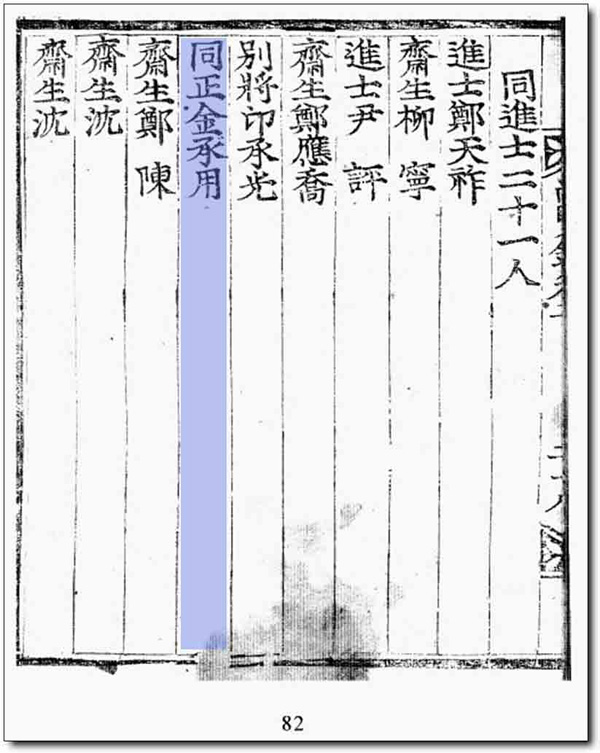 同進士二十一人
進士鄭天祚
齋生柳 寧
進士尹 評
齋生鄭應喬
別將印承光
同正金承用
齋生鄭 陳
齋生沈
齋生沈
82